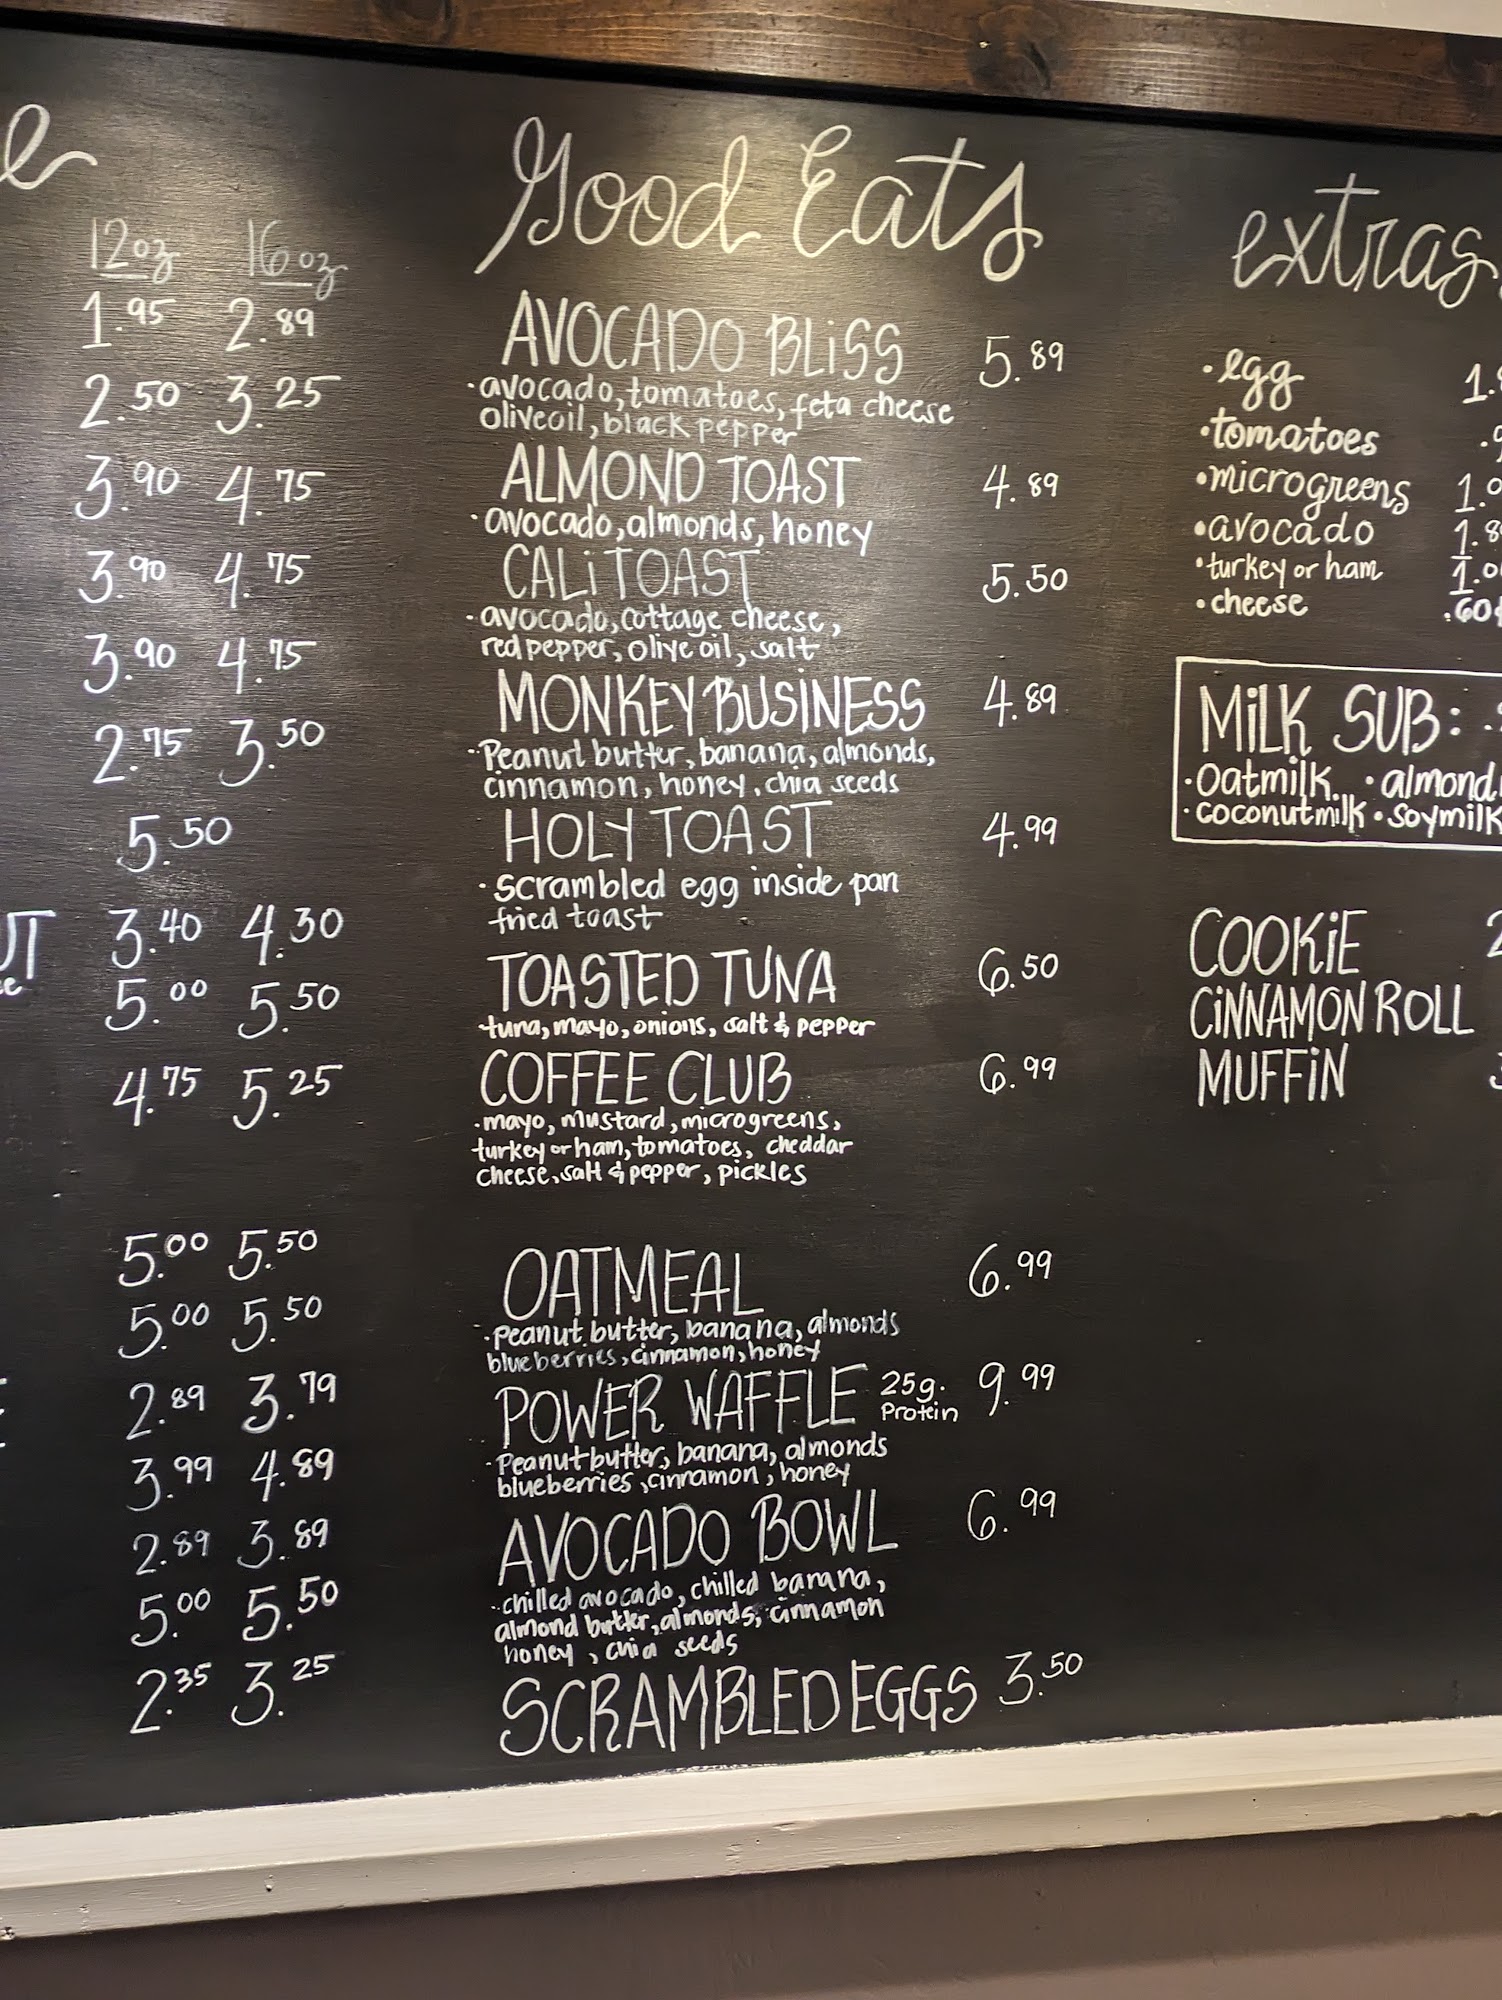 12oz 16oz
1.95 2.89
2.50 3.25
3.90 4.75
3.90 4.75
3.90 4.75
2.75 3.50
5.50
3.40 4.30
5.00 5.50
4.75 5.25
5.00 5.50
5.00 5.50
2.89 3.79
3.99 4.89
2.89 3.89
5.00 5.50
2.35 3.25
Good Eats
AVOCADO BLiSS 5.89
·avocado, tomatoes, feta cheese
olive oil, black pepper
ALMOND TOAST 4.89
·avocado, almonds, honey
CALi TOAST 5.50
·avocado, cottage cheese,
red pepper, olive oil, salt
MONKEY BUSINESS 4.89
·Peanut butter, banana, almonds,
cinnamon, honey, chia seeds
HOLY TOAST 4.99
·scrambled egg inside pan
fried toast
TOASTED TUNA 6.50
tuna, mayo, onions, salt & pepper
COFFEE CLUB 6.99
·mayo, mustard, microgreens,
turkey or ham, tomatoes, cheddar
cheese, salt & pepper, pickles
OATMEAL 6.99
·peanut butter, banana, almonds
blueberries, cinnamon, honey
POWER WAFFLE 25g. Protein 9.99
·Peanut butter, banana, almonds
blueberries, cinnamon, honey
AVOCADO BOWL 6.99
·chilled avocado, chilled banana,
almond butter, almonds, cinnamon
honey, chia seeds
SCRAMBLED EGGS 3.50
extras
·egg
·tomatoes
·microgreens
·avocado
·turkey or ham
·cheese .60
MiLK SUB:
·Oatmilk ·almond
·coconutmilk ·soymilk
COOKiE
CiNNAMON ROLL
MUFFiN